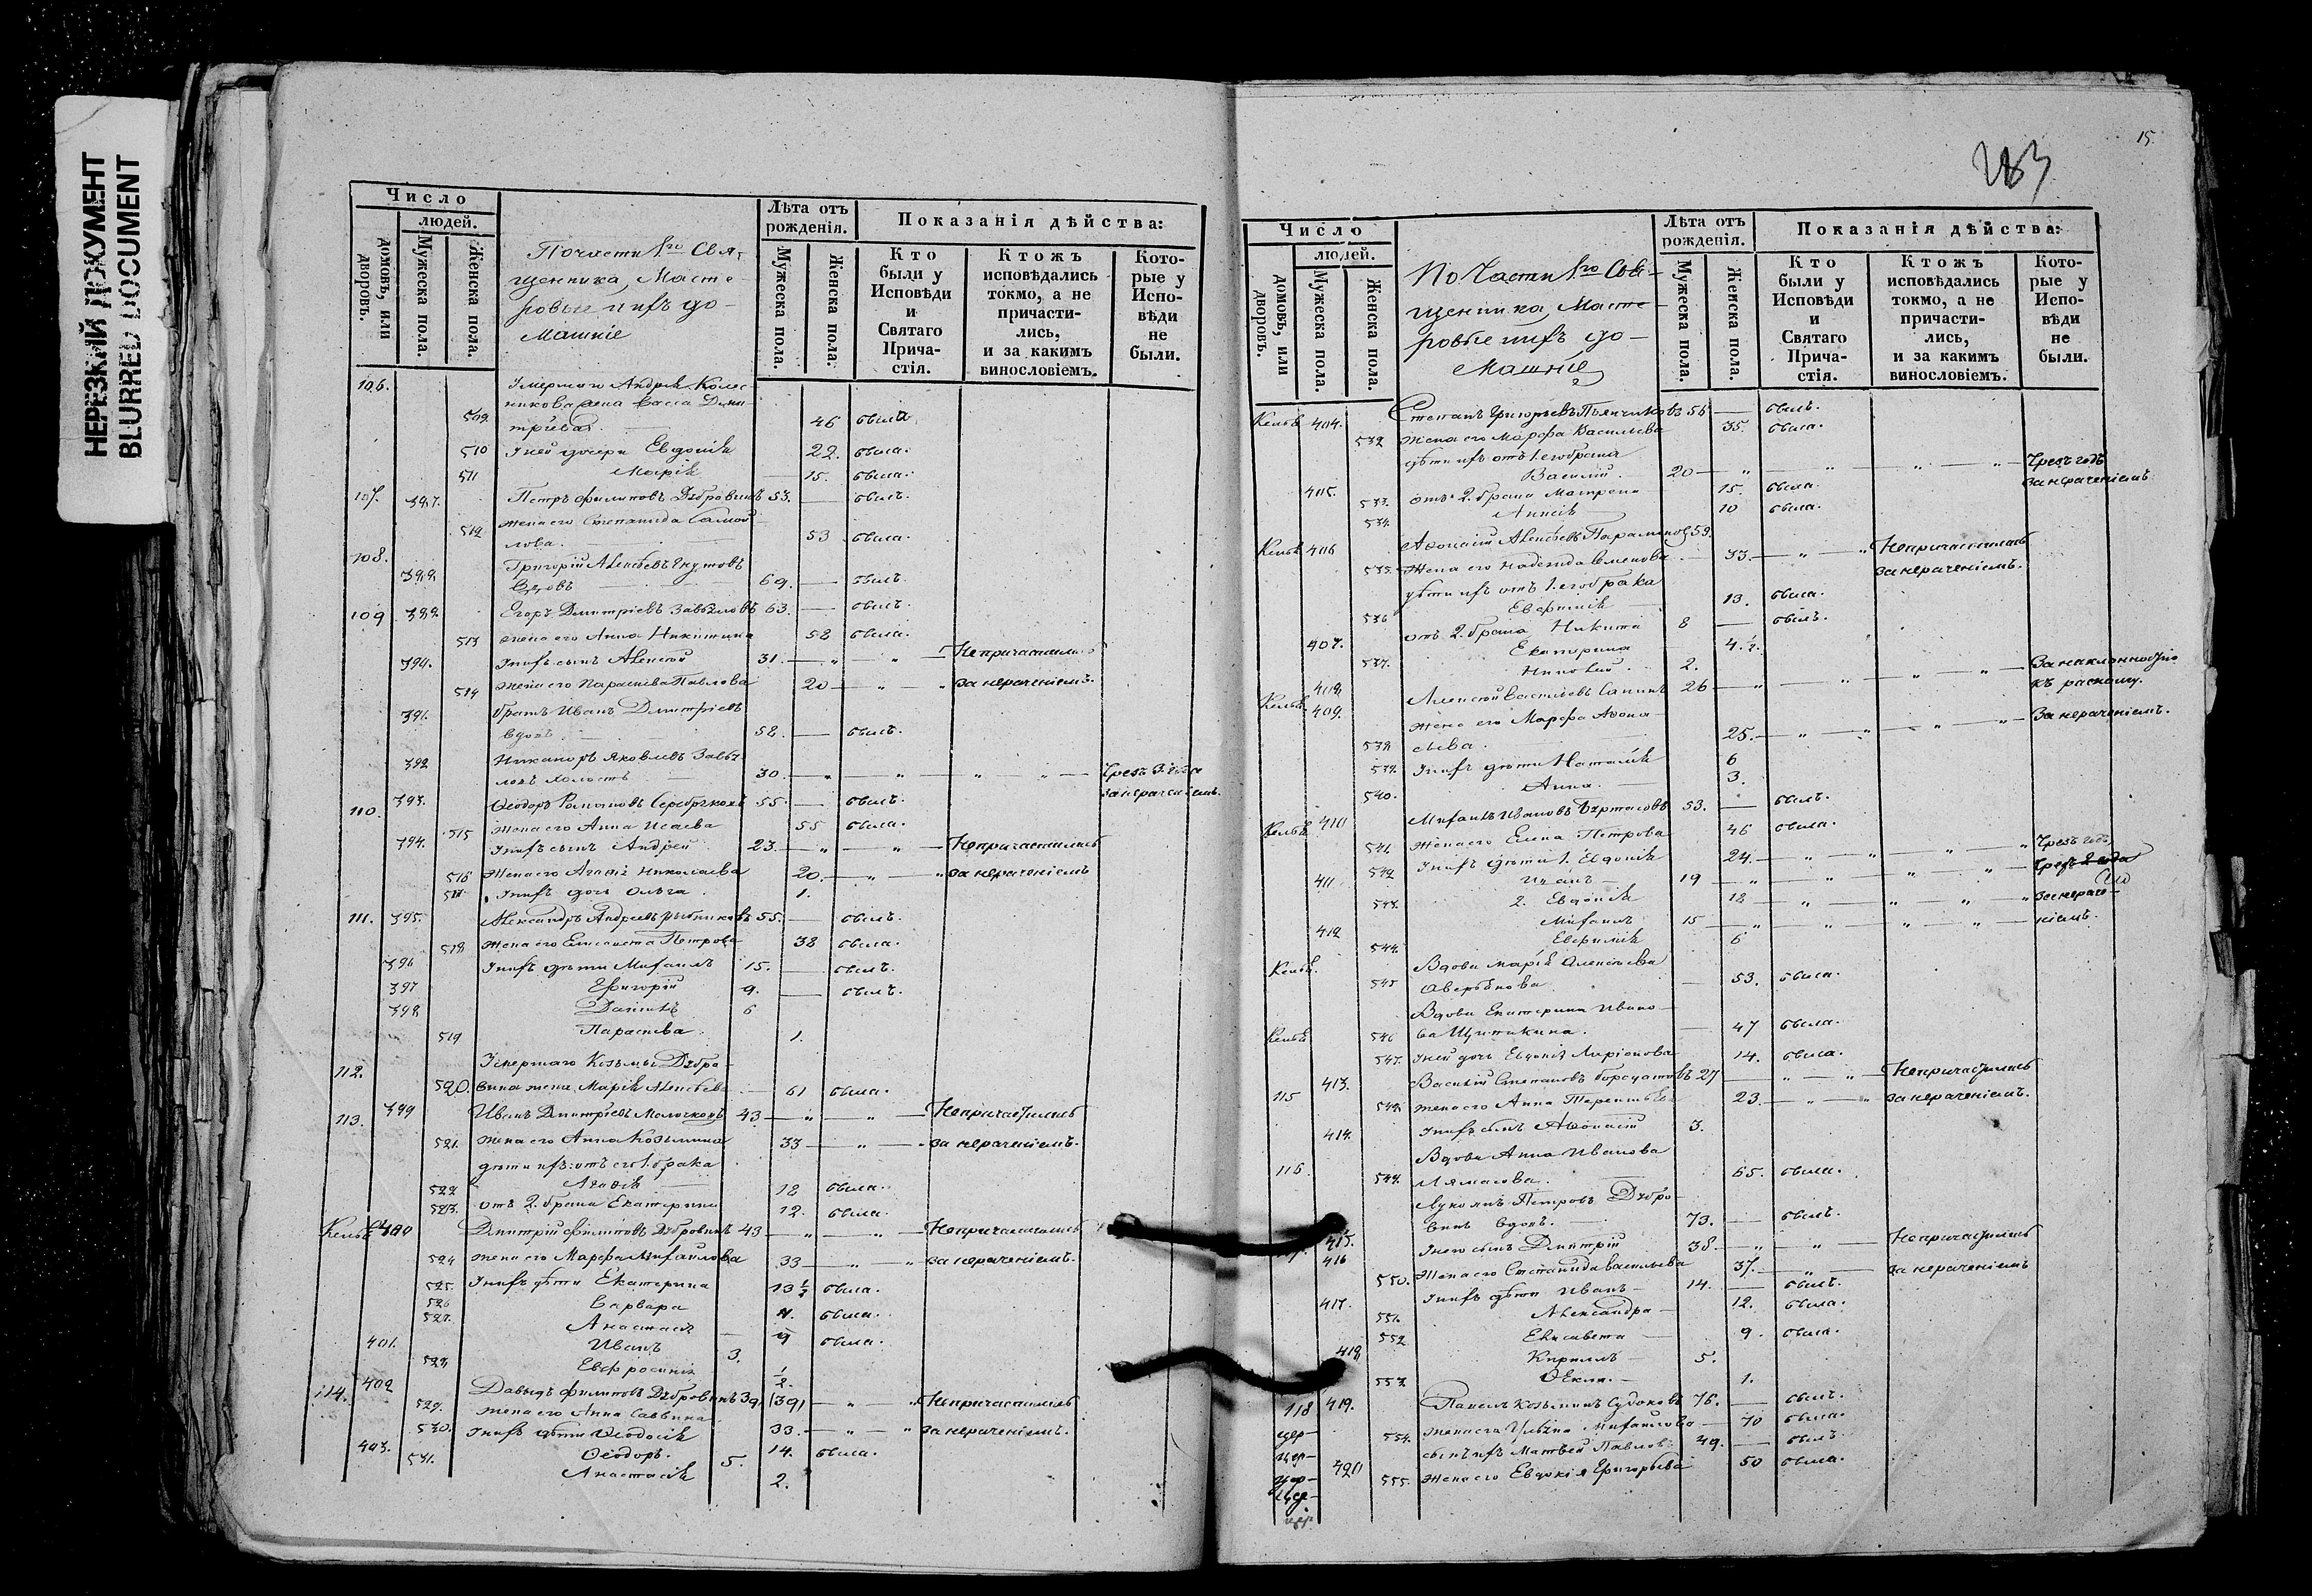 НЕРЕЗКИЙ ДОКУМЕНТ
BLURRED DOCUMENT
Число
людей.
домовъ, или дворовъ.
Мужеска пола.
Женска пола.
По части 1го Свя-
щенника, Масте-
ровые и ихъ до-
машніе
Лѣта отъ рожденія.
Мужеска пола.
Женска пола.
Показанія дѣйства:
Кто были у Исповѣди и Святаго Прича-стія.
Ктожъ исповѣдались токмо, а не причасти-лись, и за какимъ винословіемъ.
Кото-рые у Испо-вѣди не были.
106. Умершаго Андрея Колес-
никова жена Васса Дими-
509. тріева 46 была.
510 У ней дочери Евдокія 22. была.
511 Марія 15. была.
107. 387. Петръ Филиповъ Дубровинъ 53. былъ.
512 жена его Степанида Самой-
лова. 53 была.
108. 388. Григорій Алексѣевъ
вдовъ 69. былъ.
109 389. Егоръ Дмитріевъ Завьяловъ 63. былъ.
513 жена его Анна Никитина 58 была.
390. У нихъ сынъ Алексѣй 31. Непричастились
514 жена его Параскева Павлова 20 за нераченіемъ.
391. братъ Иванъ Дмитріевъ
вдовъ. 58. былъ.
392 Никаноръ Яковлевъ Завья-
ловъ холостъ 30. Чрезъ 3 года
за нераченіемъ.
110. 393. Ѳеодоръ Серебряковъ 55. былъ.
515 жена его Анна Исаева 55 была.
394. У нихъ сынъ Андрей 23. Непричастились
516 жена его Агафія Николаева 20. за нераченіемъ
517 У нихъ дочь Ольга 1.
111. 395. Александръ Андреевъ Рыбниковъ 55. былъ.
518 жена его Елисавета Петрова 38 была.
396 У нихъ дѣти Михаилъ 15. былъ.
397 Григорій 9. былъ.
398 Даніилъ 6
519 Параскева 1.
112. Умершаго Козьмы Дубро-
520. вина жена Марія Алексѣева 61 была.
113. 399 Иванъ Дмитріевъ Молочковъ 43 Непричастились
521. жена его Анна Козьмина 33 за нераченіемъ.
дѣти ихъ: отъ его 1. брака
522 Агафія 18 была.
523. отъ 2. брака Екатерина 12. была.
Келья 400 Дмитрій Филиповъ Дубровинъ 43 Непричастились
524 жена его Марфа Михайлова 33 за нераченіемъ.
525. У нихъ дѣти Екатерина 13½ была.
526 Варвара была.
527. Анастасія 9 была.
401. Иванъ 3.
528. Евфросинія ½.
114. 402 Давыдъ Филиповъ Дубровинъ 39 Непричастились
529. жена его Анна Саввина 33. за нераченіемъ.
530. У нихъ дѣти Ѳеодосія 14. была.
403. Ѳеодоръ. 5.
531. Анастасія 2.
15
283
Число
людей.
домовъ, или дворовъ.
Мужеска пола.
Женска пола.
По Части 1го Свя-
щенника, Масте-
ровые и ихъ до-
машніе
Лѣта отъ рожденія.
Мужеска пола.
Женска пола.
Показанія дѣйства:
Кто были у Исповѣди и Святаго Прича-стія.
Ктожъ исповѣдались токмо, а не причасти-лись, и за какимъ винословіемъ.
Кото-рые у Испо-вѣди не были.
Келья 404. Степанъ Григорьевъ 56 былъ.
532 жена его Марфа Васильева 35. была.
дѣти ихъ отъ 1. его брака
405. Василій 20 Чрезъ годъ
за нераченіемъ.
533. отъ 2. брака Матрена 15. была.
534. Анисія 10 была.
Келья 406 Аѳонасій Алексѣевъ Парамоновъ 59.
535. жена его Надежда Семенова 33. Непричастилась
за нераченіемъ.
дѣти ихъ отъ 1. его брака
536 Евфимія 13. была.
407. отъ 2. брака Никита 8 былъ.
537. Екатерина 4.½.
408. 2.
Келья 409. Алексѣй Васильевъ Санинъ 26 За наклонностію
къ расколу.
538 жена его Марфа Аѳона-
сьева. 25. За нераченіемъ.
539. У нихъ дѣти Наталія 6
540. Анна 3.
Келья 410 Михаилъ Ивановъ Буртасовъ 53. былъ.
541. жена его Елена Петрова 46 была.
542 У нихъ дѣти 1. Евдокія 24. Чрезъ годъ
411 Иванъ 19
543. 2. Евдокія 18 за нераче-
412 Михаилъ 15 ніемъ.
544. Евфимія 6
Келья. Вдова Марія Алексѣева
545 53. была.
Келья Вдова Екатерина Ивано-
546 ва Щипакина. 47 была.
547. У ней дочь Евдокія Ларіонова 14. была.
115 413. Василій Степановъ 27 Непричастились
548. жена его Анна Терентьева 23. за нераченіемъ.
414. У нихъ сынъ Аѳонасій 3.
116 Вдова Анна Иванова
549. Лямасова. 65. была.
415. Лукьянъ Петровъ Дубро-
винъ вдовъ. 73. былъ.
416 У него сынъ Дмитрій 38. Непричастились
550. жена его Степанида Васильева 37. за нераченіемъ
417. У нихъ дѣти Иванъ 14. былъ.
551. Александра 12. была.
552 Елисавета 9. была.
418 Кириллъ 5.
553. Ѳекла. 1.
118 419. Павелъ Козьминъ Судаковъ 76. былъ.
554. жена его Ульяна Михайлова 70 была.
420 сынъ ихъ Матвей Павловъ 49. былъ.
555. жена его Евдокія Григорьева 50 была.